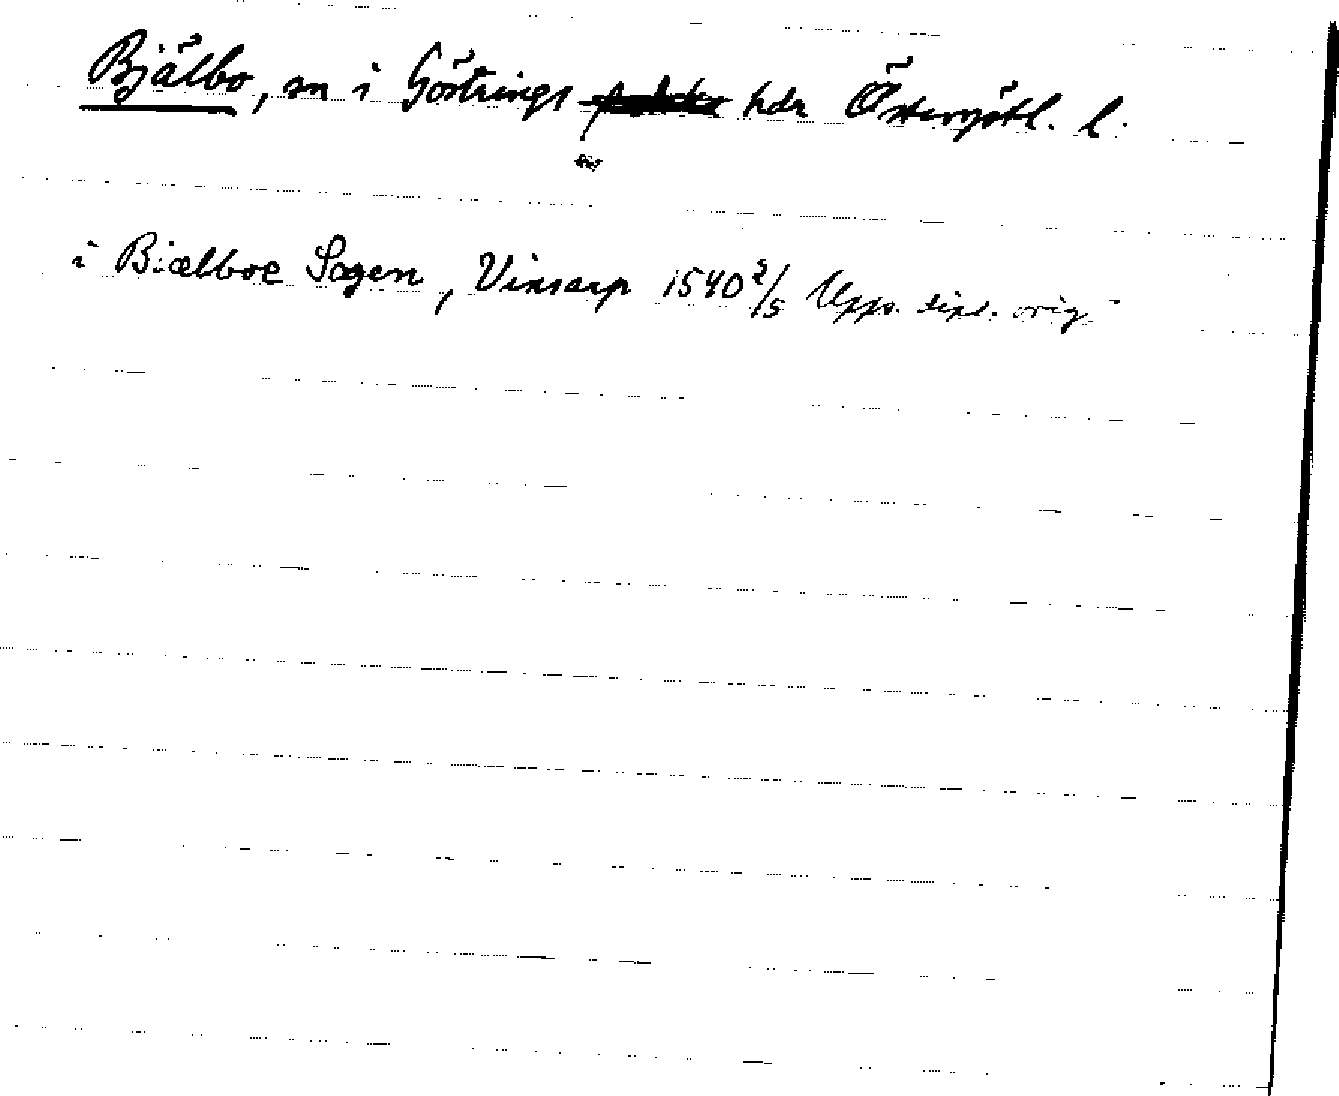 Bjälbo, sn i Göstrings hdr Östergötl. l.
i Biælboe Sogen, Vinsarp 1540 2/5 Upps. dipl. orig.